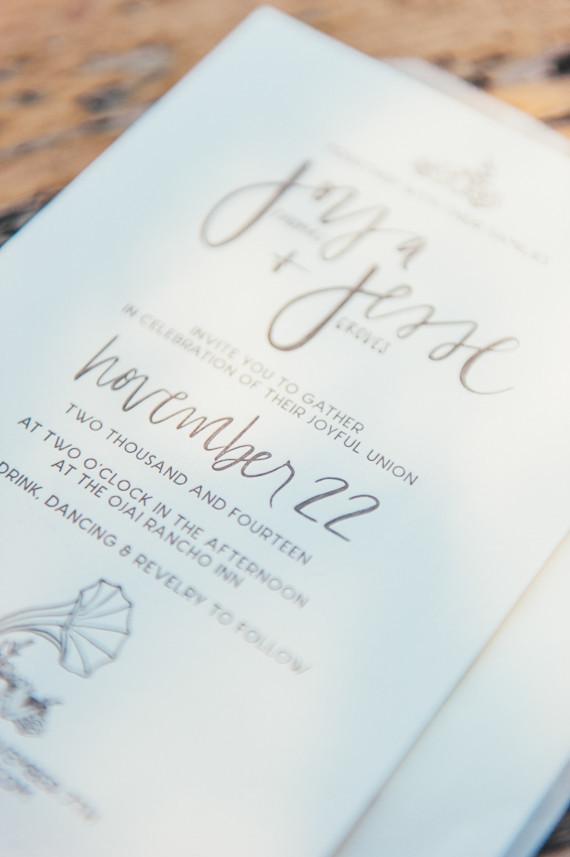 TOGETHER WITH THEIR FAMILIES
Joya
+
Jesse
GROVES
INVITE YOU TO GATHER
IN CELEBRATION OF THEIR JOYFUL UNION
november 22
TWO THOUSAND AND FOURTEEN
AT TWO O'CLOCK IN THE AFTERNOON
AT THE OJAI RANCHO INN
DRINK, DANCING & REVELRY TO FOLLOW